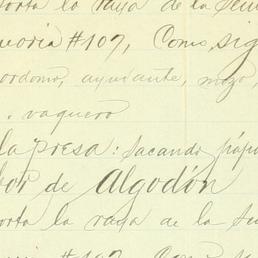 orta la raya de la Sem
moria #107, Como sig
ordomo, ayudante, mozo,
. vaquero
la presa: sacando
bor de Algodón
orta la raya de la Se
#107